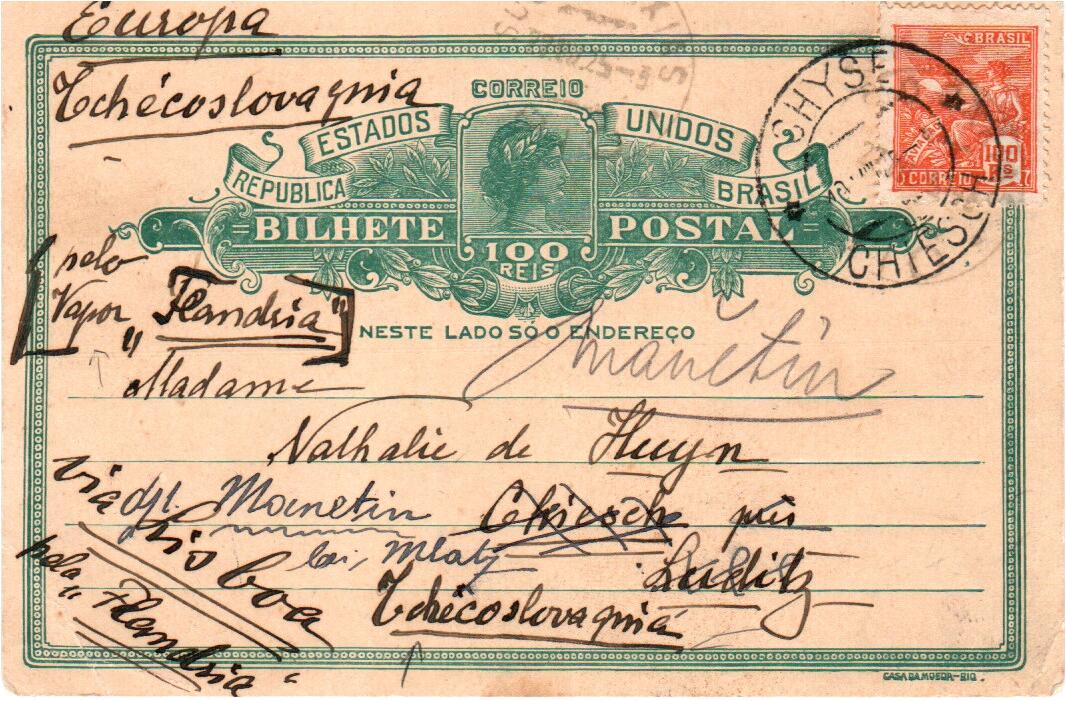 Europa
Tchécoslovaquia
CORREIO
ESTADOS UNIDOS
REPUBLICA BRASIL
BILHETE POSTAL
100
REIS
BRASIL
100
RS
CORREIO
CHYSE
CHIESCH
pelo
Vapor "Flandria"
NESTE LADO SÓ O ENDEREÇO
Manětín
Madame
Nathalie de Huyn
djl. Manetin Chiesch près
bei Mlatz Luditz
Tchécoslovaquia
via Lisboa
pela "Flandria"
CASA DA MOEDA-RIO